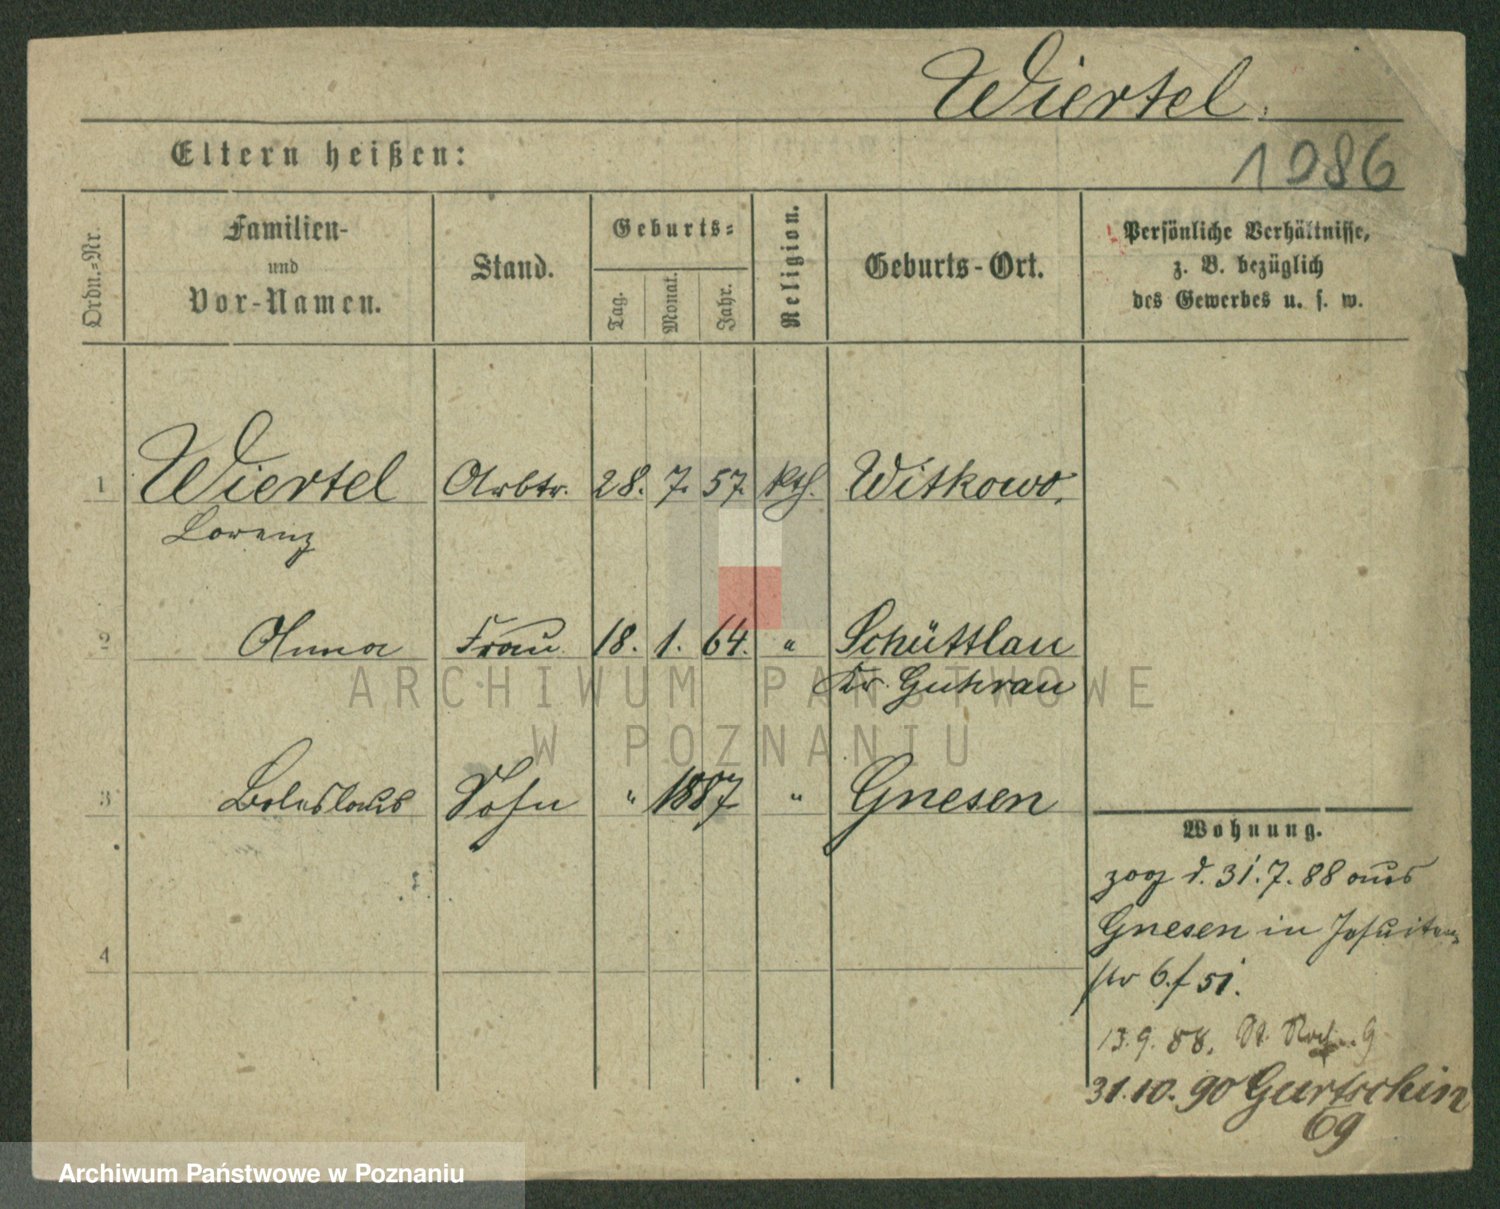 Wiertel.
Eltern heißen:
1086
Ordn.=Nr.
Familien-
und
Vor-Namen.
Stand.
Geburts=
Tag.
Monat.
Jahr.
Religion.
Geburts-Ort.
Persönliche Verhältnisse,
z. B. bezüglich
des Gewerbes u. s. w.
1 Wiertel Arbtr. 28. 7. 57. kth. Witkowo.
Lorenz
2 Anna Frau 18. 1. 64. " Schüttlau
Kr. Guhrau
3 Boleslaus Sohn " 1887 " Gnesen
4
Wohnung.
zog d. 31.7.88 aus
Gnesen in Jesuiten
str 6. f 51.
13.9.88. St. 9
31.10.90 Gurtschin
69
ARCHIWUM PAŃSTWOWE
W POZNANIU
Archiwum Państwowe w Poznaniu